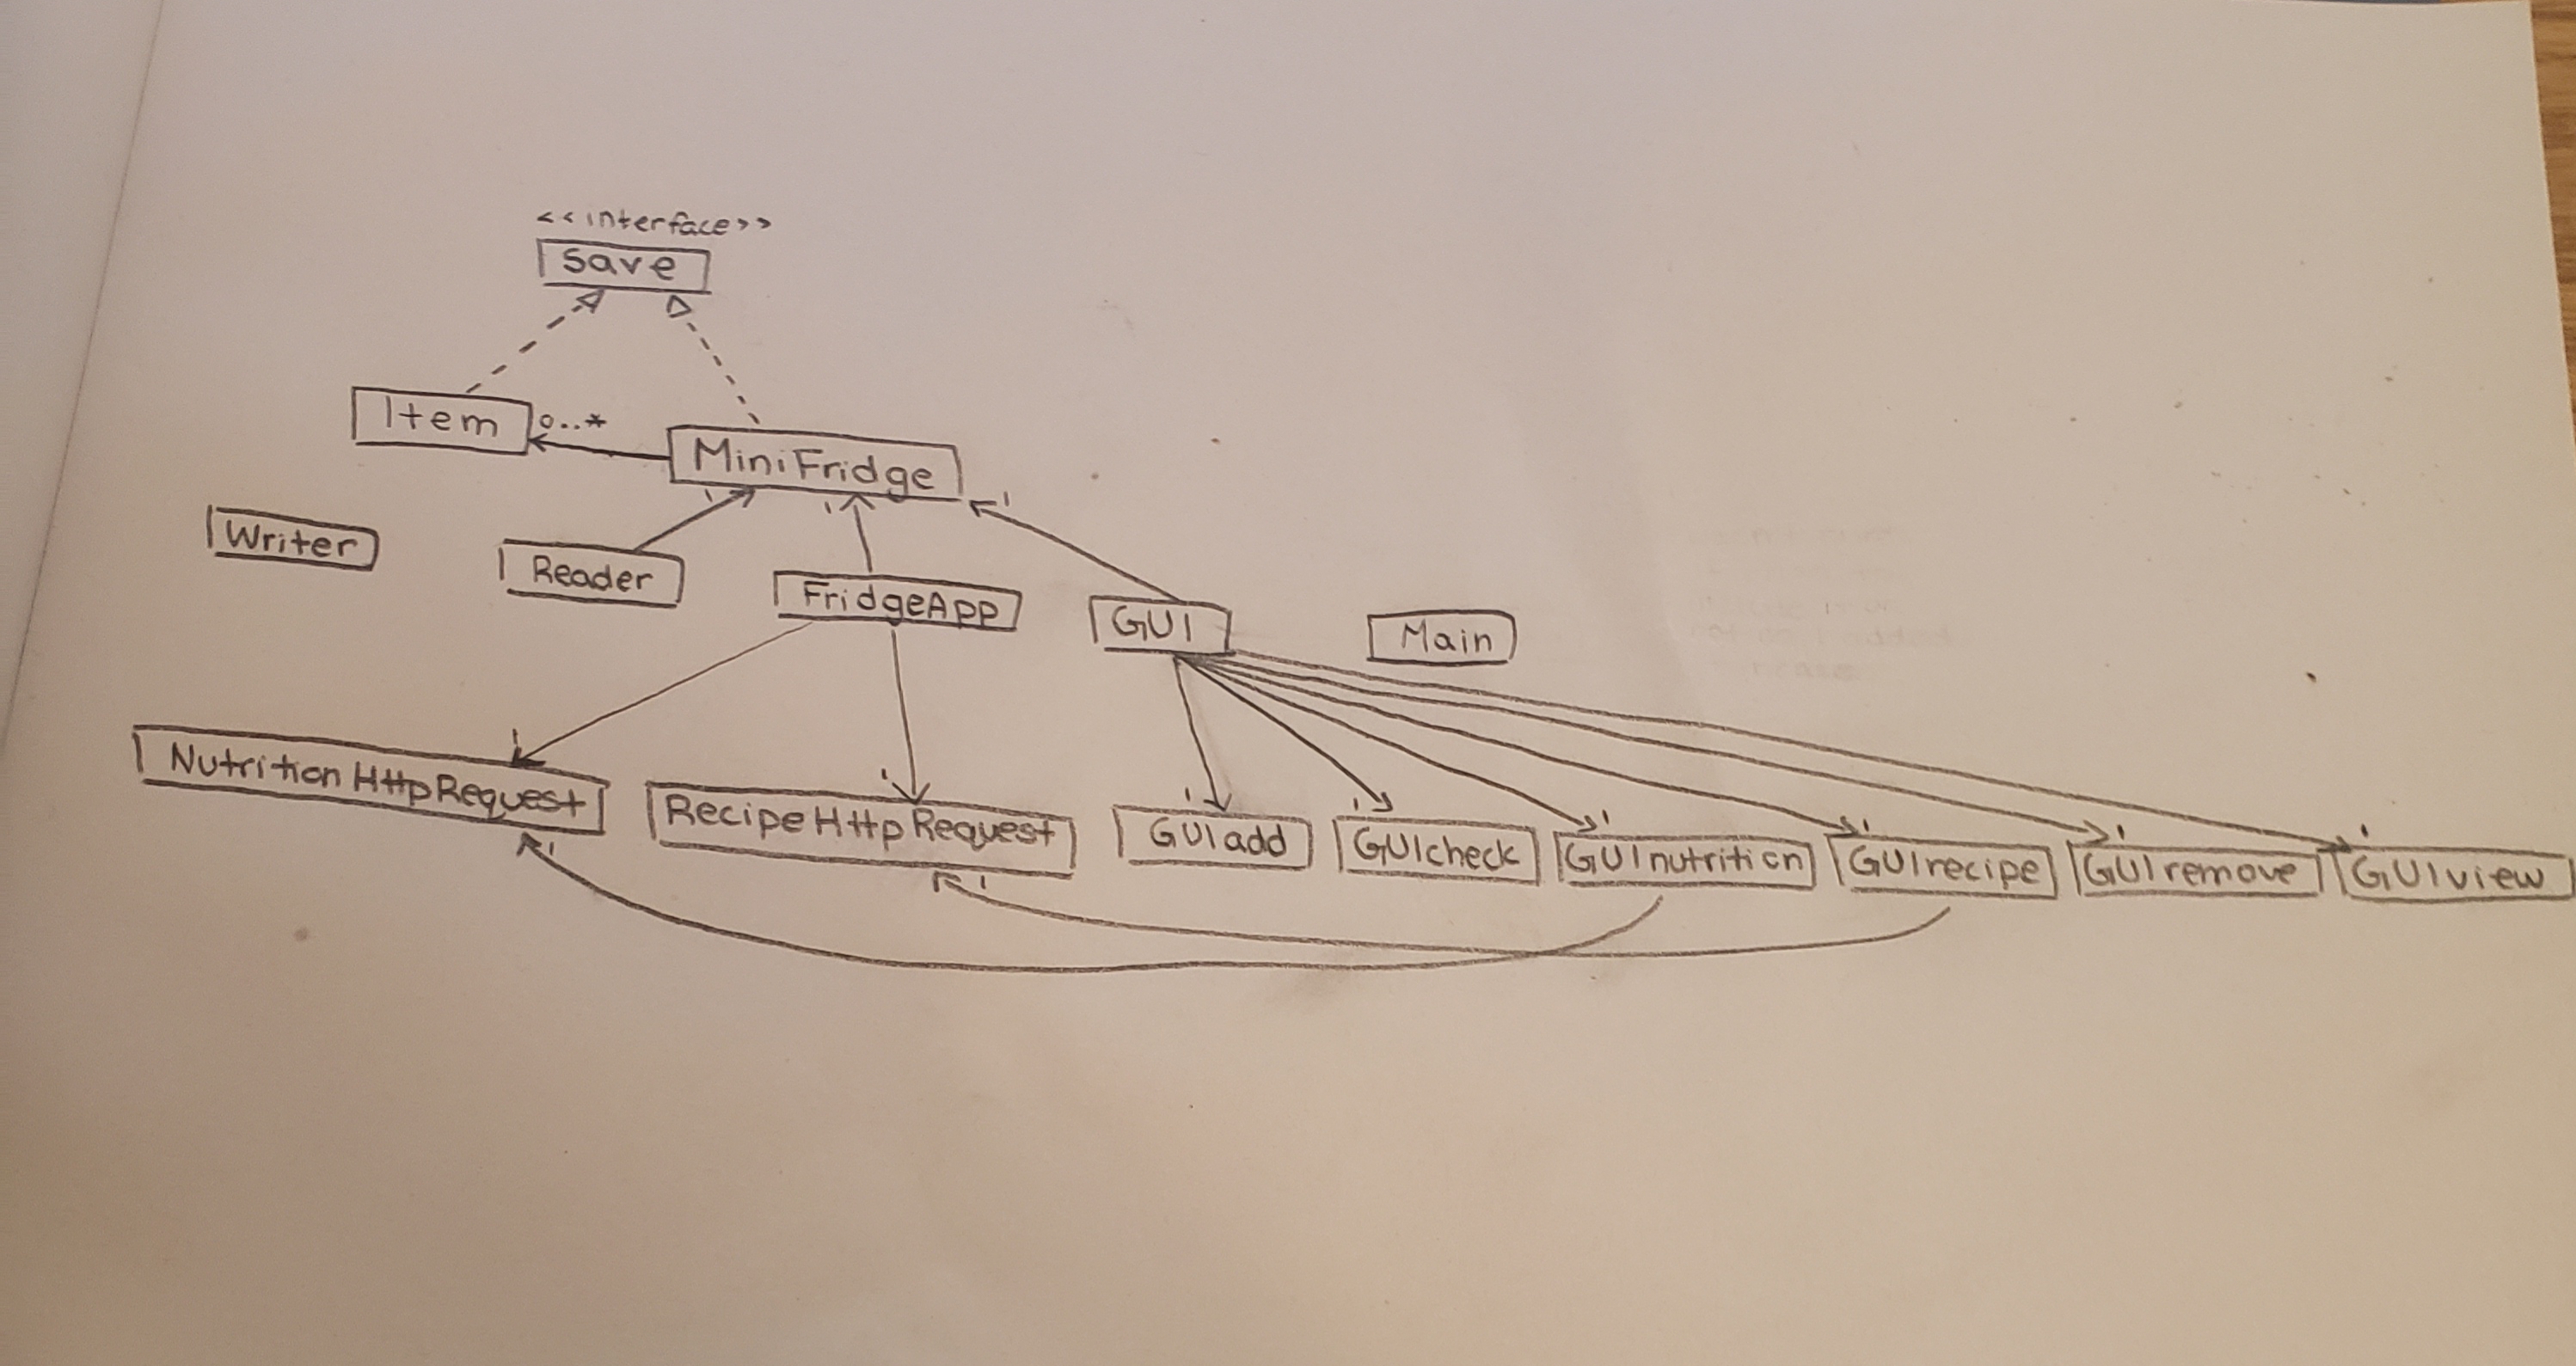 <<interface>>
Save
Item
0..*
MiniFridge
1
1
1
Writer
Reader
FridgeApp
GUI
Main
1
1
1
1
1
1
1
1
NutritionHttpRequest
RecipeHttpRequest
GUIadd
GUIcheck
GUInutrition
GUIrecipe
GUIremove
GUIview
1
1